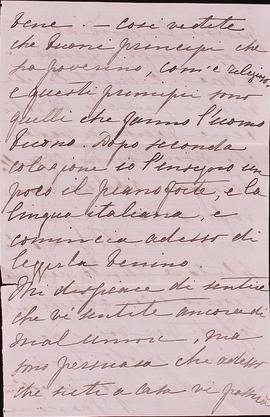 bene. – così vedete
che buoni principi che
ha poverino, com'è religioso
e questi principi sono
quelli che fanno l'uomo
buono. Dopo seconda
colazione io l'insegno un
poco il piano forte, e la
lingua italiana, e
comincia adesso di
legerla benino.
Mi dispiace di sentire
che vi sentite ancora di
mal umore, ma
sono persuasa che adesso
che siete a casa vi